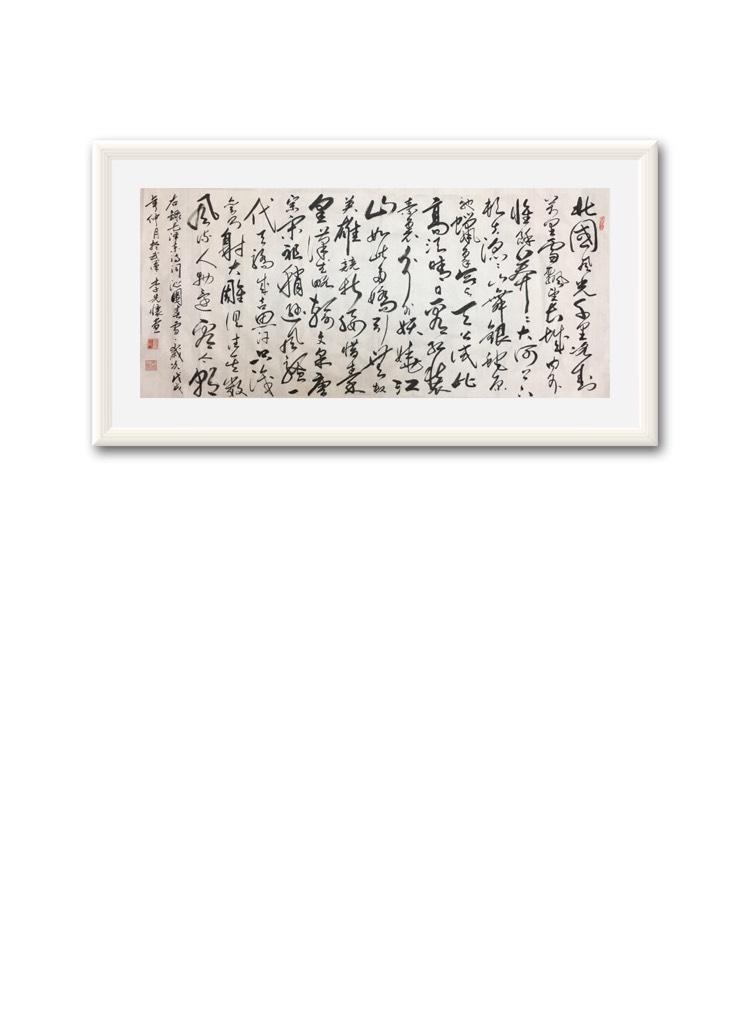 北國風光千里冰封
万里雪飘望长城内外
惟餘莽莽大河上下
顿失滔滔山舞銀蛇原
驰蠟象欲与天公试比
高须晴日看红装
素裹分外妖娆江
山如此多嬌引無数
英雄競折腰惜秦
皇漢武略輸文采唐
宗宋祖稍逊風騷一
代天骄成吉思汗只識
弯弓射大雕俱往矣数
風流人物还看今朝
右録毛泽东诗词沁園春雪歲次戊戌
年仲月於